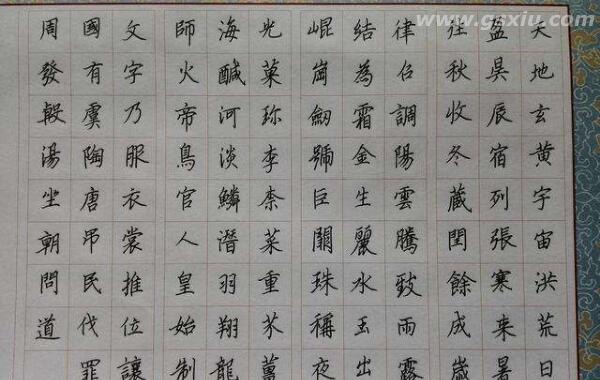 www.gsxiu.com
天地玄黄宇宙洪荒日
盈昃辰宿列張寒来暑
往秋收冬藏閏餘成歲
律吕調陽雲騰致雨露
結為霜金生麗水玉出
崐崗劒號巨闕珠稱夜
光菓珍李柰菜重芥薑
海鹹河淡鱗潛羽翔龍
師火帝鳥官人皇始制
文字乃服衣裳推位讓
國有虞陶唐吊民伐罪
周發殷湯坐朝問道